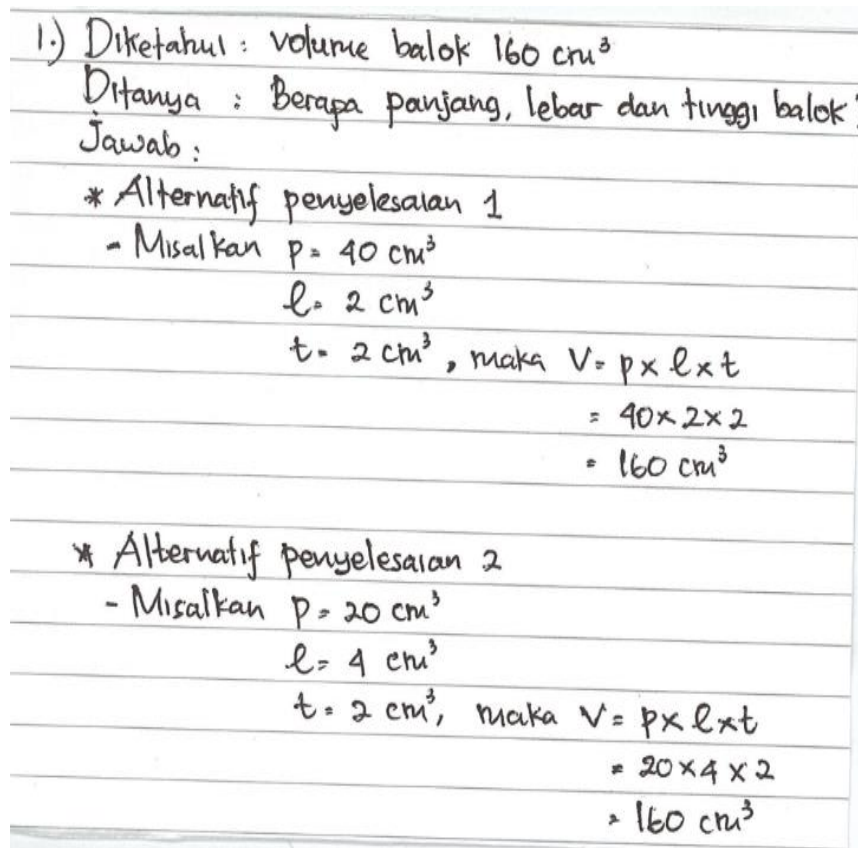 1.) Diketahui : Volume balok 160 cm³
Ditanya : Berapa panjang, lebar dan tinggi balok?
Jawab :
* Alternatif penyelesaian 1
- Misalkan p = 40 cm³
l = 2 cm³
t = 2 cm³, maka V = p x l x t
= 40 x 2 x 2
= 160 cm³
* Alternatif penyelesaian 2
- Misalkan p = 20 cm³
l = 4 cm³
t = 2 cm³, maka V = p x l x t
= 20 x 4 x 2
= 160 cm³